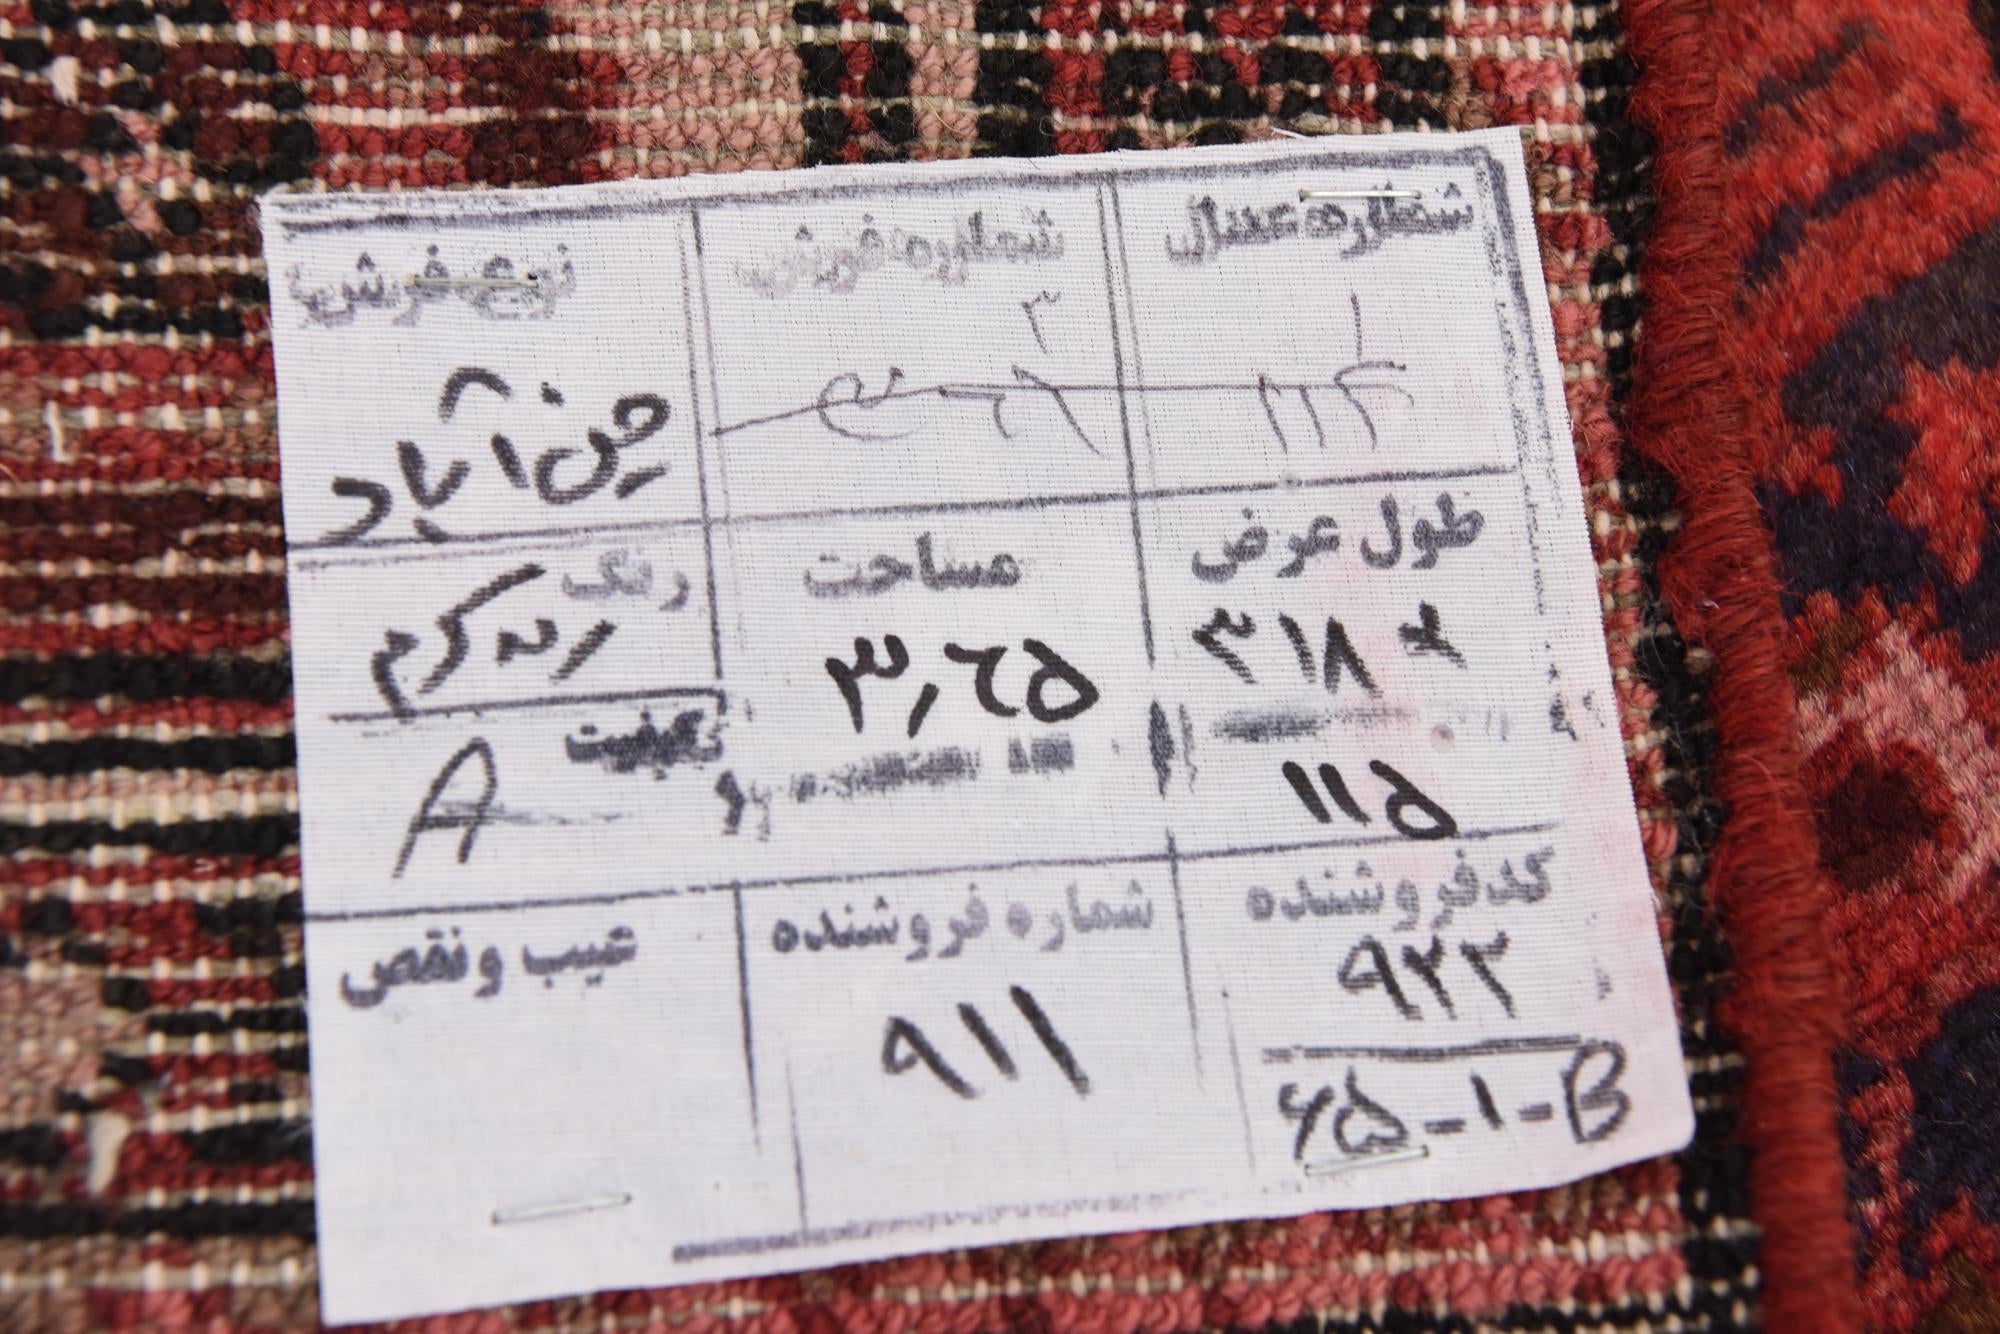 شماره عدل
۱
۱۱۴
شماره فرش
۳
نوع فرش
حسن آباد
طول عرض
۳۱۸ *
۱۱۵
مساحت
۳٫۶۵
رنگ
کرم
کیفیت
A
کد فروشنده
۹۲۲
۶۵-۱-B
شماره فروشنده
۹۱۱
عیب و نقص